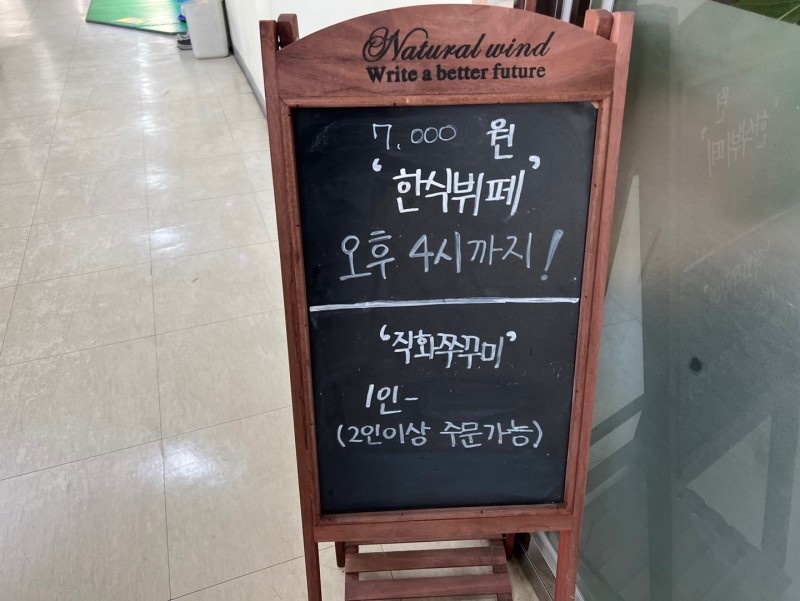 Natural wind
Write a better future
7,000 원
'한식뷔페'
오후 4시까지!
'직화쭈꾸미'
1인-
(2인이상 주문가능)